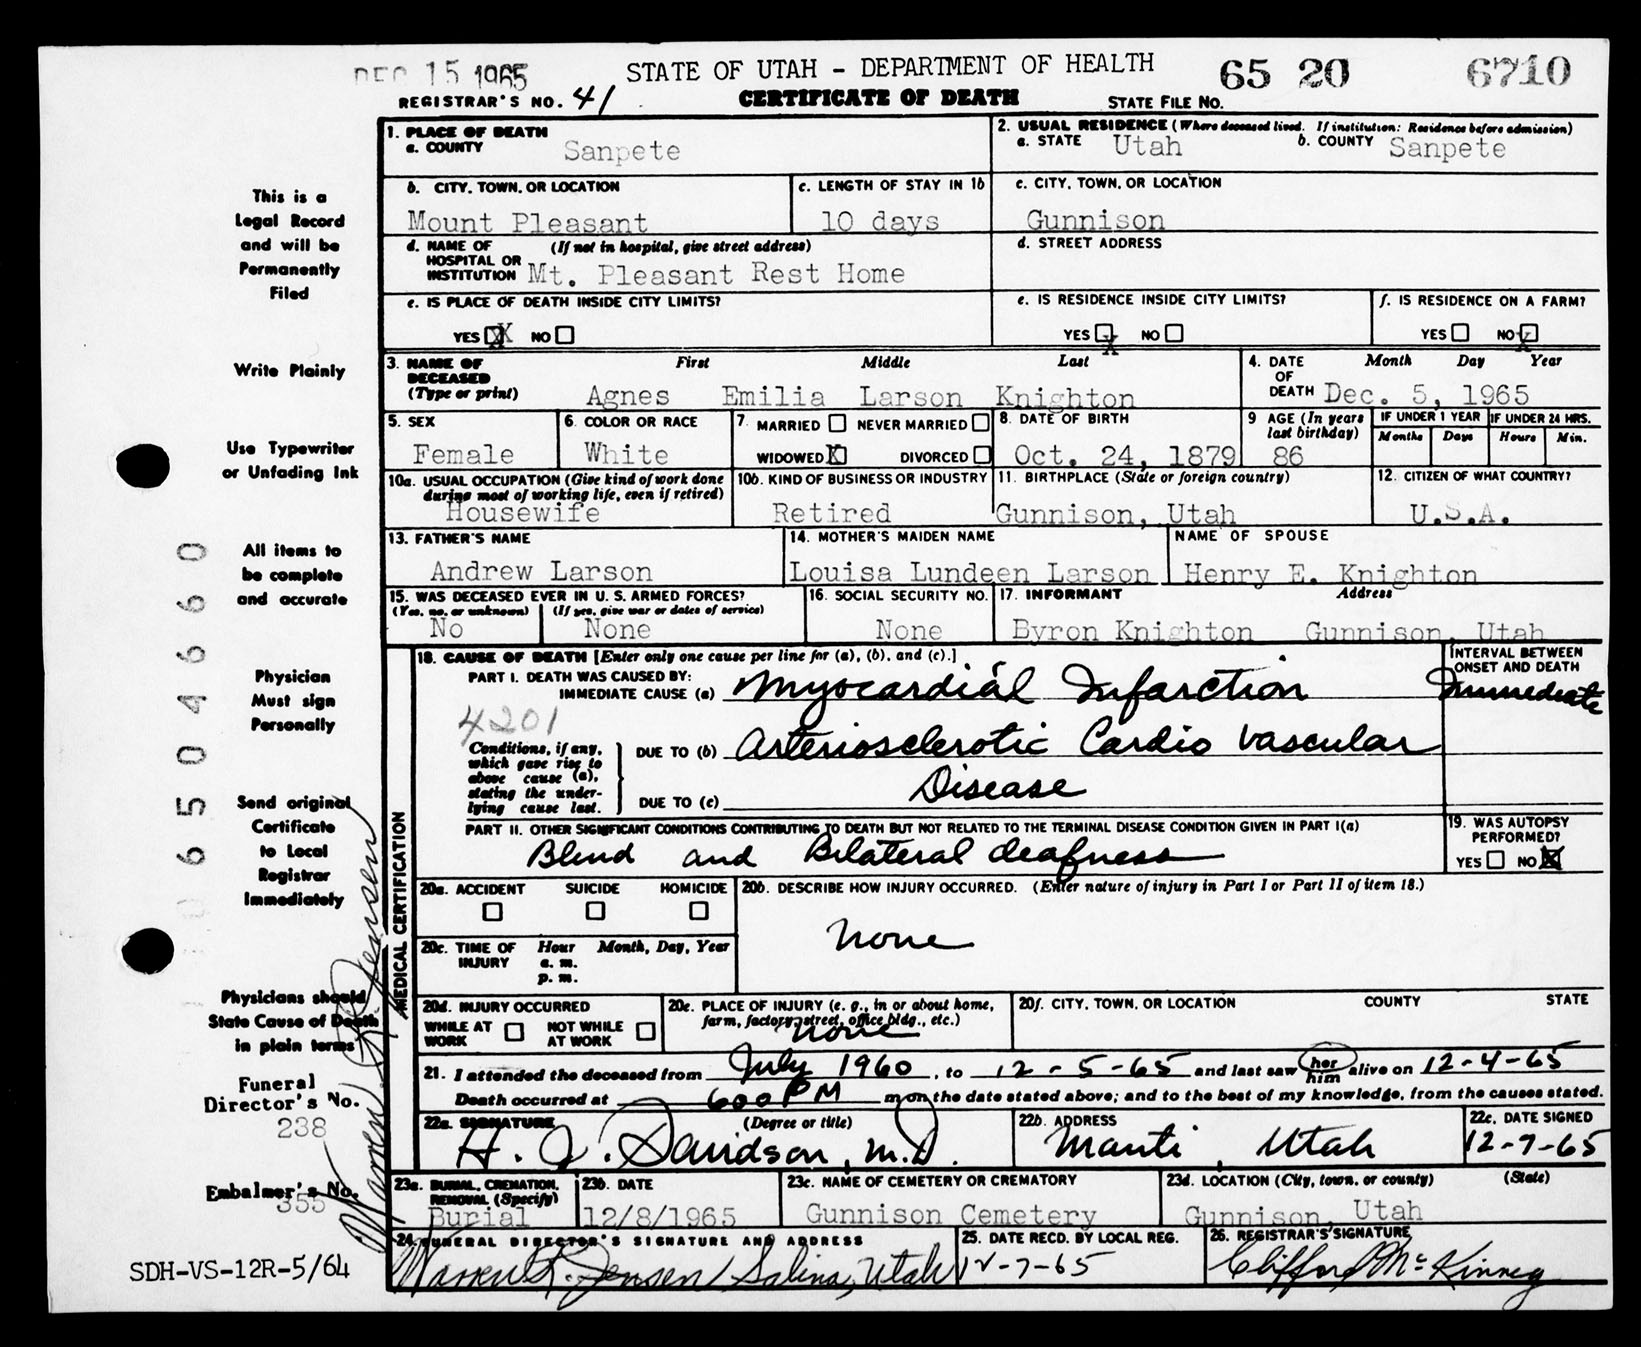 DEC 15 1965 STATE OF UTAH - DEPARTMENT OF HEALTH 65 20 6710
REGISTRAR'S NO. 41 CERTIFICATE OF DEATH STATE FILE NO.
1. PLACE OF DEATH
a. COUNTY Sanpete
2. USUAL RESIDENCE (Where deceased lived. If institution: Residence before admission)
a. STATE Utah b. COUNTY Sanpete
b. CITY, TOWN, OR LOCATION
Mount Pleasant
c. LENGTH OF STAY IN 1b
10 days
c. CITY, TOWN, OR LOCATION
Gunnison
d. NAME OF (If not in hospital, give street address)
HOSPITAL OR
INSTITUTION Mt. Pleasant Rest Home
d. STREET ADDRESS
e. IS PLACE OF DEATH INSIDE CITY LIMITS?
YES X NO
e. IS RESIDENCE INSIDE CITY LIMITS?
YES X NO
f. IS RESIDENCE ON A FARM?
YES NO X
3. NAME OF First Middle Last
DECEASED
(Type or print) Agnes Emilia Larson Knighton
4. DATE Month Day Year
OF
DEATH Dec. 5, 1965
5. SEX
Female
6. COLOR OR RACE
White
7. MARRIED NEVER MARRIED
WIDOWED X DIVORCED
8. DATE OF BIRTH
Oct. 24, 1879
9 AGE (In years
last birthday)
86
IF UNDER 1 YEAR IF UNDER 24 HRS.
Months Days Hours Min.
10a. USUAL OCCUPATION (Give kind of work done
during most of working life, even if retired)
Housewife
10b. KIND OF BUSINESS OR INDUSTRY
Retired
11. BIRTHPLACE (State or foreign country)
Gunnison, Utah
12. CITIZEN OF WHAT COUNTRY?
U.S.A.
13. FATHER'S NAME
Andrew Larson
14. MOTHER'S MAIDEN NAME
Louisa Lundeen Larson
NAME OF SPOUSE
Henry E. Knighton
15. WAS DECEASED EVER IN U. S. ARMED FORCES?
(Yes, no, or unknown) (If yes, give war or dates of service)
No None
16. SOCIAL SECURITY NO.
None
17. INFORMANT Address
Byron Knighton Gunnison, Utah
MEDICAL CERTIFICATION
18. CAUSE OF DEATH [Enter only one cause per line for (a), (b), and (c).]
INTERVAL BETWEEN
ONSET AND DEATH
PART I. DEATH WAS CAUSED BY:
IMMEDIATE CAUSE (a) Myocardial Infarction Immediate
4201
Conditions, if any,
which gave rise to
above cause (a),
stating the under-
lying cause last.
DUE TO (b) Arteriosclerotic Cardio Vascular
Disease
DUE TO (c)
PART II. OTHER SIGNIFICANT CONDITIONS CONTRIBUTING TO DEATH BUT NOT RELATED TO THE TERMINAL DISEASE CONDITION GIVEN IN PART I(a)
Blind and Bilateral deafness
19. WAS AUTOPSY
PERFORMED?
YES NO X
20a. ACCIDENT SUICIDE HOMICIDE
20b. DESCRIBE HOW INJURY OCCURRED. (Enter nature of injury in Part I or Part II of item 18.)
None
20c. TIME OF Hour Month, Day, Year
INJURY a. m.
p. m.
20d. INJURY OCCURRED
WHILE AT WORK NOT WHILE AT WORK
20e. PLACE OF INJURY (e. g., in or about home,
farm, factory, street, office bldg., etc.)
None
20f. CITY, TOWN, OR LOCATION COUNTY STATE
21. I attended the deceased from July 1960, to 12-5-65 and last saw her him alive on 12-4-65
Death occurred at 600 PM m on the date stated above; and to the best of my knowledge, from the causes stated.
22a. SIGNATURE (Degree or title)
H. J. Davidson, M.D.
22b. ADDRESS
Manti, Utah
22c. DATE SIGNED
12-7-65
23a. BURIAL, CREMATION,
REMOVAL (Specify)
Burial
23b. DATE
12/8/1965
23c. NAME OF CEMETERY OR CREMATORY
Gunnison Cemetery
23d. LOCATION (City, town, or county) (State)
Gunnison, Utah
24. FUNERAL DIRECTOR'S SIGNATURE AND ADDRESS
Warren R. Jensen Salina, Utah
25. DATE RECD. BY LOCAL REG.
12-7-65
26. REGISTRAR'S SIGNATURE
Clifford McKinney
This is a
Legal Record
and will be
Permanently
Filed
Write Plainly
Use Typewriter
or Unfading Ink
All items to
be complete
and accurate
Physician
Must sign
Personally
Send original
Certificate
to Local
Registrar
Immediately
Physicians should
State Cause of Death
in plain terms
Funeral
Director's No.
238
Embalmer's No.
355
Warren R Jensen
SDH-VS-12R-5/64